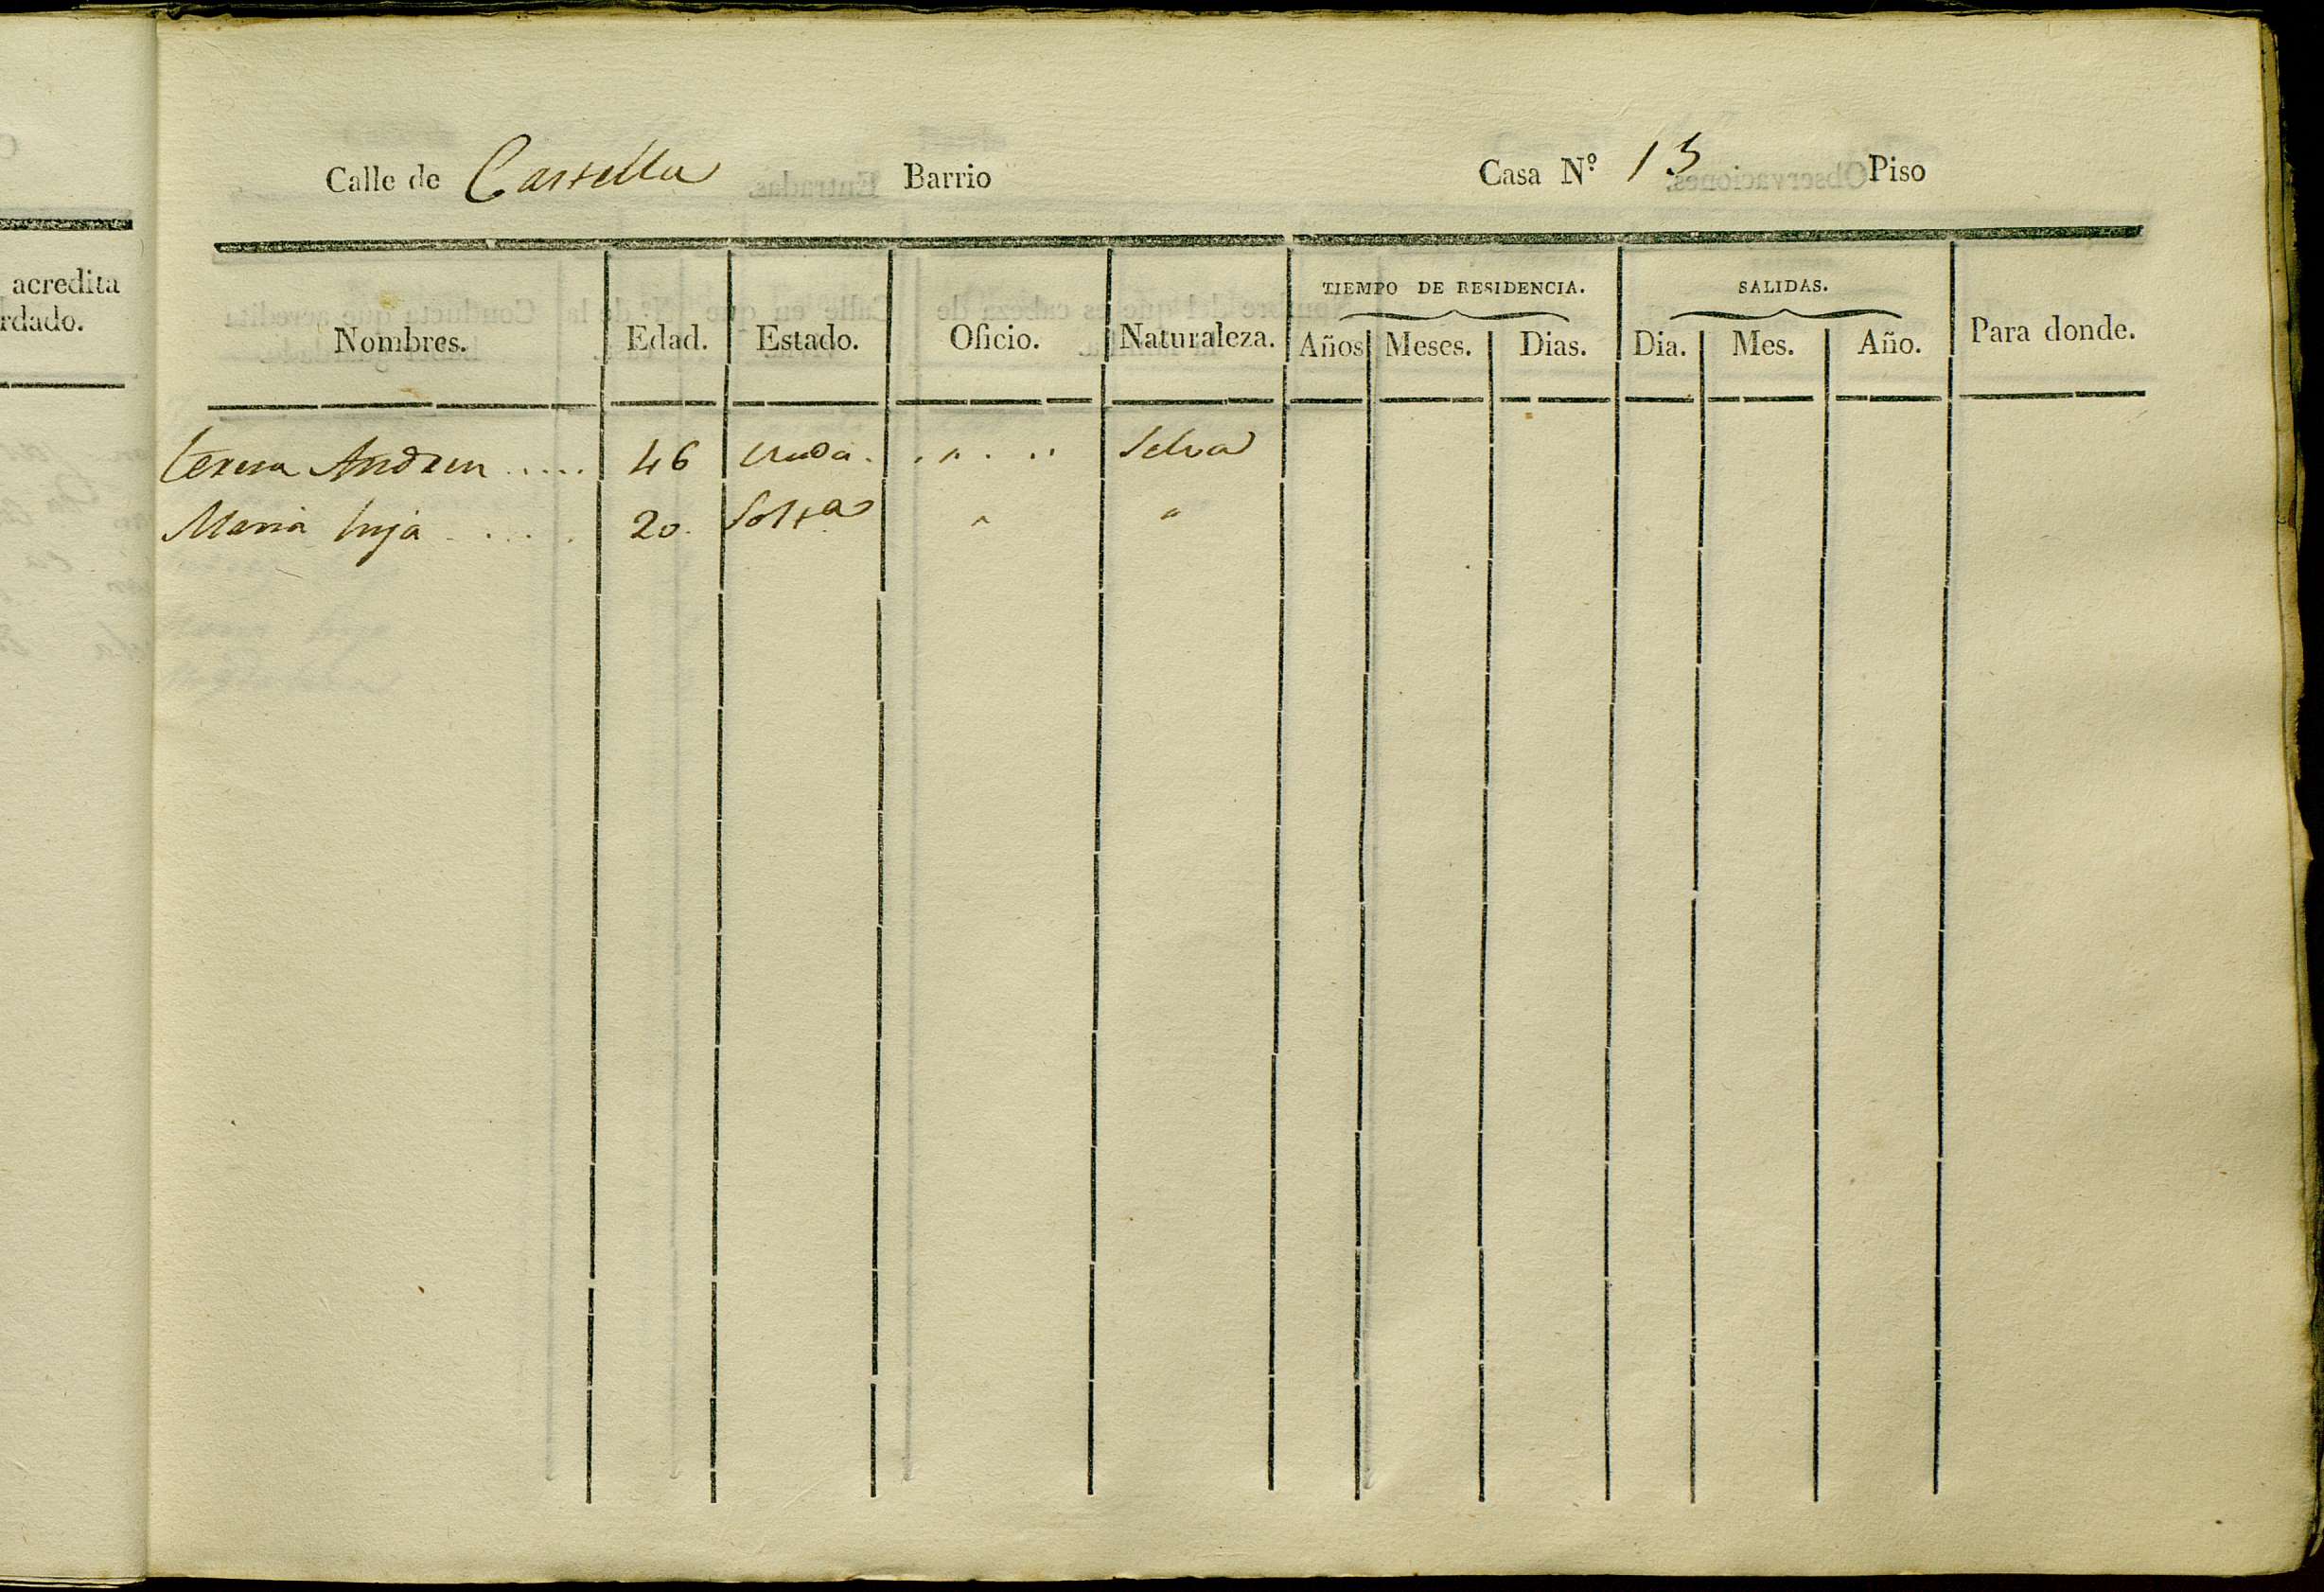 Calle de Castella Barrio Casa N.º 13 Piso
acredita
rdado.
Nombres. Edad. Estado. Oficio. Naturaleza. TIEMPO DE RESIDENCIA. Años Meses. Dias. SALIDAS. Dia. Mes. Año. Para donde.
teresa Andreu ..... 46 viuda . . " . .. Selva
Maria hija ..... 20. Solt.a " "